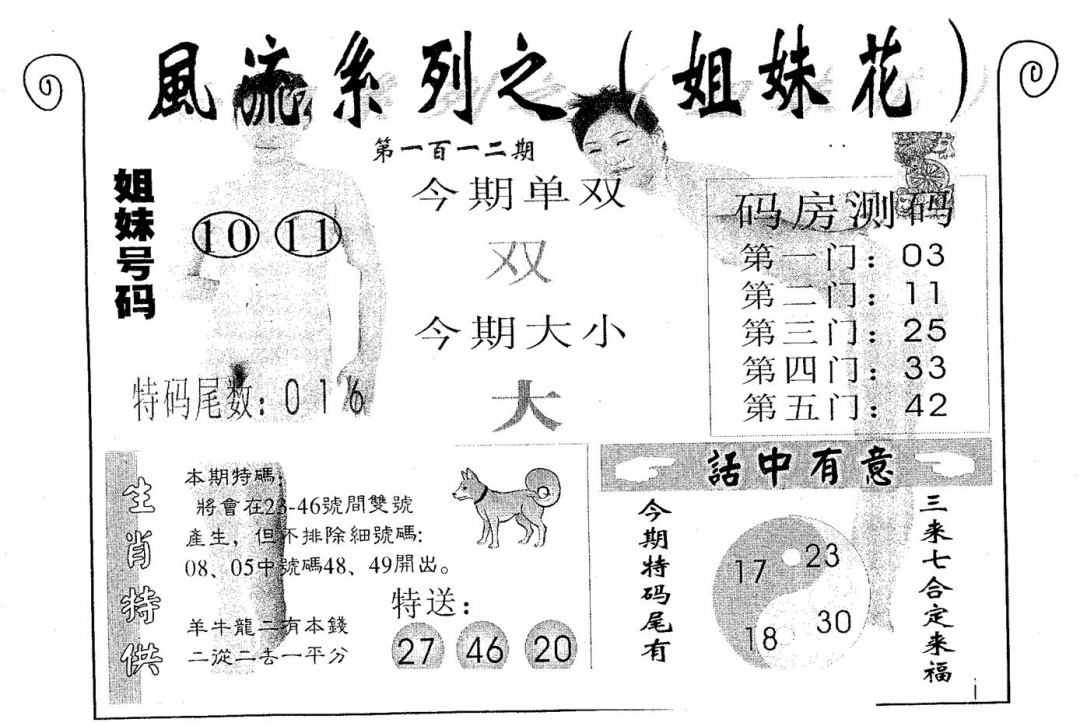 風流系列之（姐妹花）
第一百一二期
姐妹号码
10 11
特码尾数：0 1 6
今期单双
双
今期大小
大
码房测码
第一门：03
第二门：11
第三门：25
第四门：33
第五门：42
生肖特供
本期特碼：
將會在23-46號間雙號
產生，但不排除細號碼：
08、05中號碼48、49開出。
羊牛龍二有本錢
二從二去一平分
特送：
27 46 20
話中有意
今期特码尾有
17 23
18 30
三来七合定来福